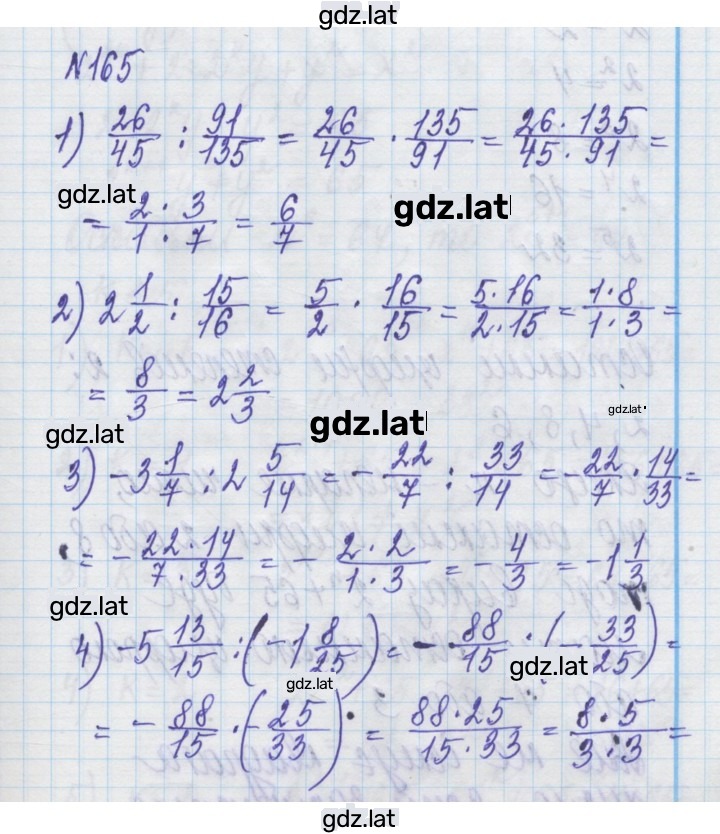 gdz.lat
№165
1) 26/45 : 91/135 = 26/45 · 135/91 = 26·135/45·91 =
gdz.lat
= 2·3/1·7 = 6/7
gdz.lat
2) 2 1/2 : 15/16 = 5/2 · 16/15 = 5·16/2·15 = 1·8/1·3 =
= 8/3 = 2 2/3
gdz.lat
gdz.lat
gdz.lat
3) -3 1/7 : 2 5/14 = - 22/7 : 33/14 = - 22/7 · 14/33 =
= - 22·14/7·33 = - 2·2/1·3 = - 4/3 = -1 1/3
gdz.lat
4) -5 13/15 : (-1 8/25) = - 88/15 : (- 33/25) =
gdz.lat
gdz.lat
= - 88/15 · (- 25/33) = 88·25/15·33 = 8·5/3·3 =
gdz.lat